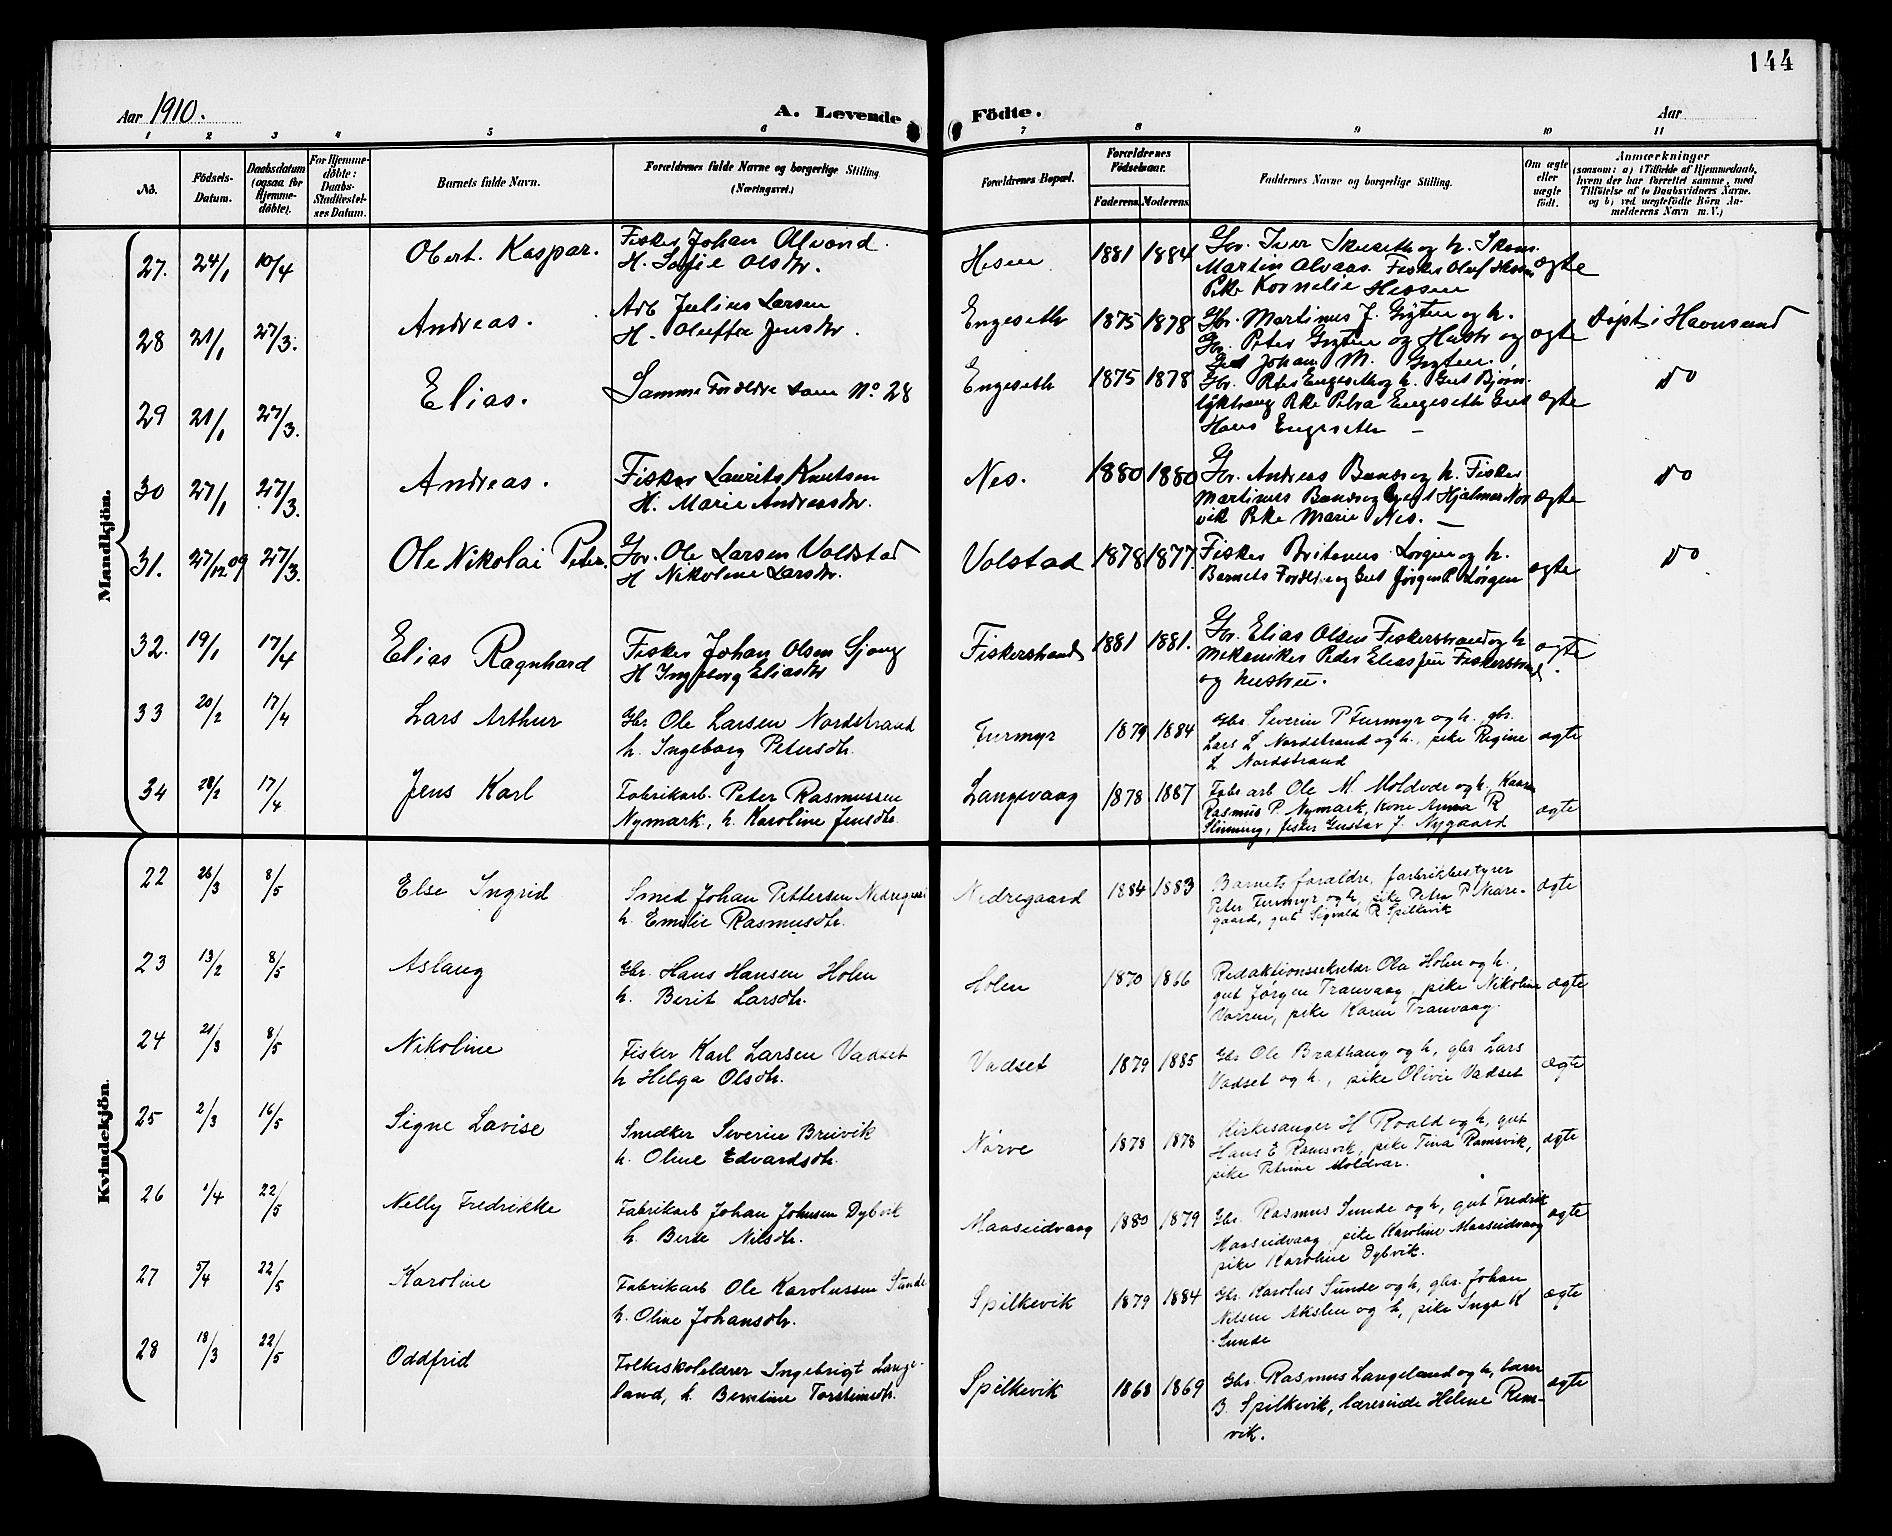 144
Aar 1910.
A. Levende
Födte.
Aar
1 2 3 4 5 6 7 8 9 10 11
No.
Födsels-
Datum.
Daabsdatum
(ogsaa for
Hjemme-
döbte).
For Hjemme-
döbte:
Daabs-
Stadfæstel-
ses Datum.
Barnets fulde Navn.
Forældrenes fulde Navne og borgerlige Stilling
(Næringsvei.)
Forældrenes Bopæl.
Forældrenes
Födselsaar.
Faderens. Moderens.
Faddernes Navne og borgerlige Stilling.
Om ægte
eller
uægte
födt.
Anmærkninger
(saasom: a) i Tilfælde af Hjemmedaab,
hvem der har forrettet samme, med
Tilföielse af to Daabsvidners Navne,
og b) ved uægtefödte Börn An-
melderens Navn m. V.)
Mandkjön.
27. 24/1 10/4 Obert. Kaspar.
Fisker Johan Olvond.
H. Sofie Olsdtr.
Hesen 1881 1884
Gbr. Iver og h.
Martin Alvaas. Fisker Oluf
Pike Kornelie Hessen
ægte
28 21/1 27/3. Andreas.
Arb Julius Larsen
H. Oluffa Jensdtr.
Engeseth 1875 1878
Gbr. Martinus J. Gryten og h.
Gbr. Peter Gryten og Hustr og
Gut Johan M. Gryten.
ægte
Døpt i Havnsund
29 21/1 27/3. Elias.
Samme Forældre som No. 28
Engeseth 1875 1878
Gbr. Peter Engeseth og h. Gut Bjørn
Pike Petra Engeseth Gut
Hans Engeseth —
ægte
do
30 27/1 27/3. Andreas.
Fisker Laurits Knutsen
H. Marie Andreasdtr.
Nes. 1880 1880
Gbr. Andreas og h. Fisker
Martinus Hjalmar
vik Pike Marie Nes. —
ægte
do
31. 27/12 09 27/3. Ole Nikolai Peter.
Gbr. Ole Larsen Valdstad
H Nikoline Larsdtr.
Volstad 1878 1877.
Fisker og h.
Barnets Forældre og Gut Jørgen P.
ægte
do
32. 19/1 17/4 Elias Ragnhard
Fisker Johan Olsen
H Ingeborg Eliasdtr
Fiskerstrand 1881 1881.
Gbr. Elias Olsen Fiskerstrand og h
Mekaniker Peder Eliassen Fiskerstrand
og hustru.
ægte
33 20/2 17/4 Lars Arthur
Gbr Ole Larsen Nordstrand
h. Ingeborg Petersdtr.
Furmyr 1879 1884
Gbr. Severin P Furmyr og h., gbr.
Lars L Nordstrand og h., pike Regine
L Nordstrand
ægte
34 28/2 17/4 Jens Karl
Fabrikarb. Peter Rasmussen
Nymark, h. Karoline Jensdtr.
Langevaag 1878 1887
Fabr arb Ole M. Moldvær og h,
Rasmus P. Nymark, kone Anna R
Slinning, fisker Gustav J. Nygaard
ægte
Kvindekjön.
22 26/3 8/5 Else Ingrid
Smed Johan Pettersen Nedregaard
h. Emilie Rasmusdtr.
Nedregaard 1884 1883
Barnets forældre, fabrikbestyrer
Peter Furmyr og h, pike Petra P
gaard, gut Sigvald R Spilkevik
ægte
23 13/2 8/5 Aslaug
Gbr. Hans Hansen Holen
h. Berit Larsdtr.
Holen 1870 1866
Redaktionssekretær Ola Holen og h.,
gut Jørgen Tranvaag, pike Nikoline
pike Karen Tranvaag.
ægte
24 21/3 8/5 Nikoline
Fisker Karl Larsen Vadset
h Helga Olsdtr.
Vadset 1879 1885
Gbr Ole Brathaug og h, gbr Lars
Vadset og h., pike Olivie Vadset
ægte
25 2/3 16/5 Signe Lovise
Snedker Severin Breivik
h. Oline Edvardsdtr.
Nørve 1878 1878
Kirkesanger H Roald og h, gut
Hans E Ramsvik, pike Tina Ramsvik,
pike Petrine Moldvær.
ægte
26 1/4 22/5 Nelly Fredrikke
Fabrikarb Johan Johnsen Dybvik
h. Berte Nilsdtr.
Maaseidvaag 1880 1879
Gbr. Rasmus Sunde og h, gut Fredrik
Maaseidvaag, pike Karoline Maaseidvaag
pike Karoline Dybvik.
ægte
27 5/4 22/5 Karoline
Fabrikarb Ole Karolussen Sunde
h. Oline Johansdtr.
Spilkevik 1879 1884
Gbr. Karolus Sunde og h, gbr. Johan
Nilsen Akslen og h, pike Inga K
Sunde
ægte
28 18/3 22/5 Oddfrid
Folkeskolelærer Ingebrigt Lange-
land, h. Berntine Torsteinsdtr.
Spilkevik 1868 1869
Gbr. Rasmus Langeland og h, lærer
B. Spilkevik, lærerinde Helene Rem-
vik.
ægte